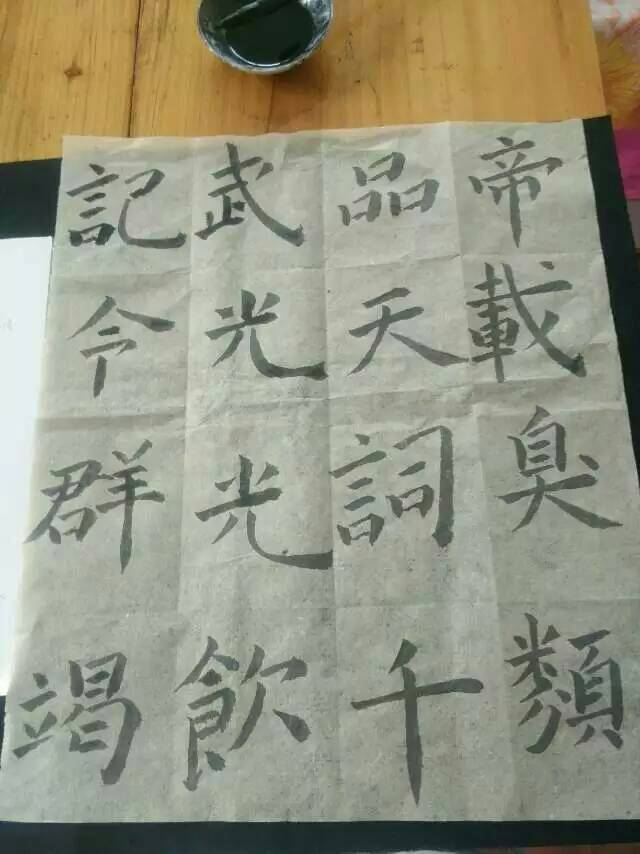 帝載臭類
品天詞千
武光光飲
記令群竭